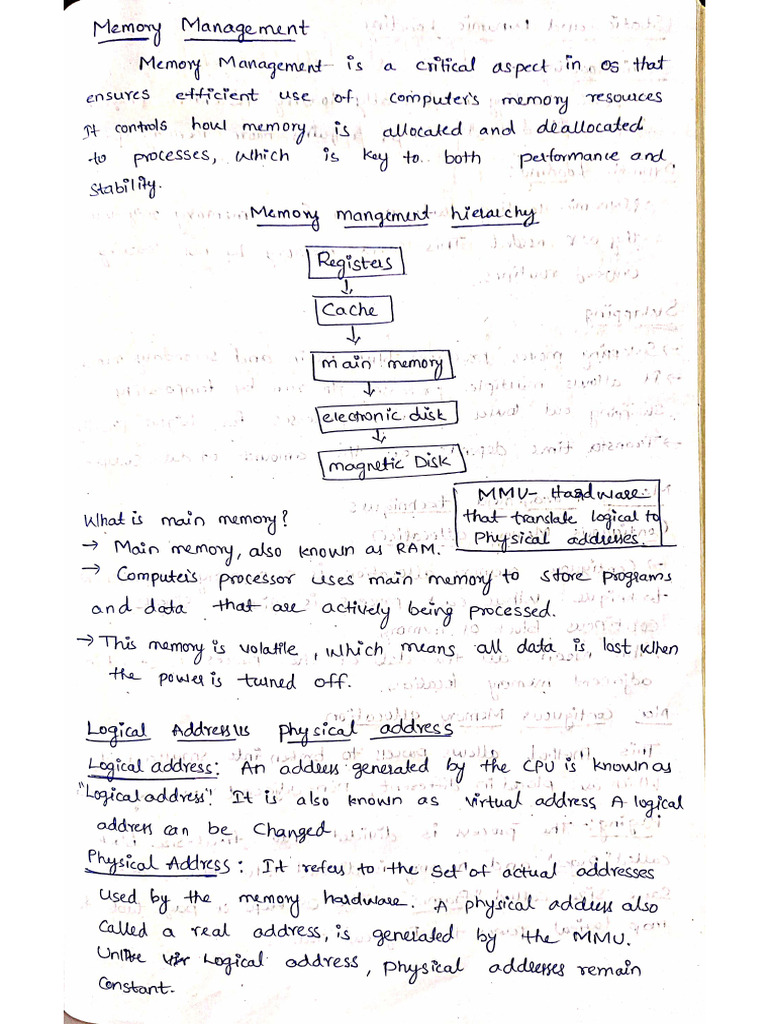 Memory Management
Memory Management is a critical aspect in os that
ensures efficient use of computer's memory resources
It controls how memory is allocated and deallocated
to processes, which is key to both performance and
stability.
Memory mangement hierarchy
Registers
Cache
main memory
electronic disk
magnetic Disk
MMU- Hardware
that translate logical to
Physical addresses.
What is main memory?
→ Main memory, also known as RAM.
→ Computer's processor uses main memory to store programs
and data that are actively being processed.
→ This memory is volatile, which means all data is lost when
the power is turned off.
Logical Address vs physical address
Logical address: An address generated by the CPU is known as
"Logical address". It is also known as virtual address. A logical
address can be changed.
Physical Address: It refers to the set of actual addresses
used by the memory hardware. A physical address also
called a real address, is generated by the MMU.
Unlike Logical address, physical addresses remain
constant.